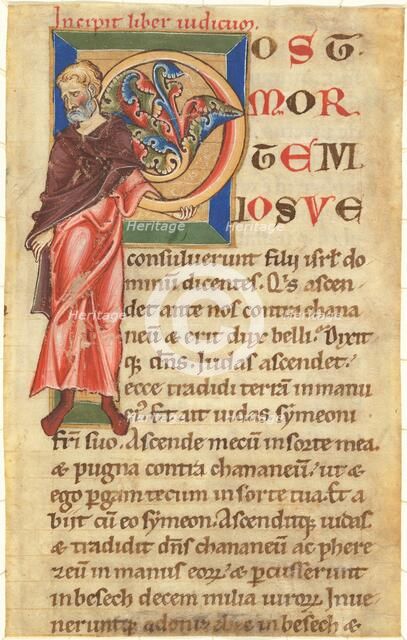 Incipit liber iudicum.
POST
MOR
TEM
IOSVE
consuluerunt filij isrl' do
minum dicentes. Qis ascen
det ante nos contra chana
neū & erit dux belli. Dixit
q; dn̄s. Iudas ascendet.
ecce tradidi terrā in manu
Et ait iudas symeoni
fr̄i suo. Ascende mecū in sorte mea.
& pugna contra chananeū. ut &
ego pergam tecum in sorte tua. Et a
bijt cū eo symeon. Ascenditq; iudas.
& tradidit dn̄s chananeū ac phere
zeū in manus eorū. & percusserunt
in besech decem milia uirorū. Inue
neruntq; adonibezec in besech &
Heritage
Heritage
Heritage
Heritage
Heritage